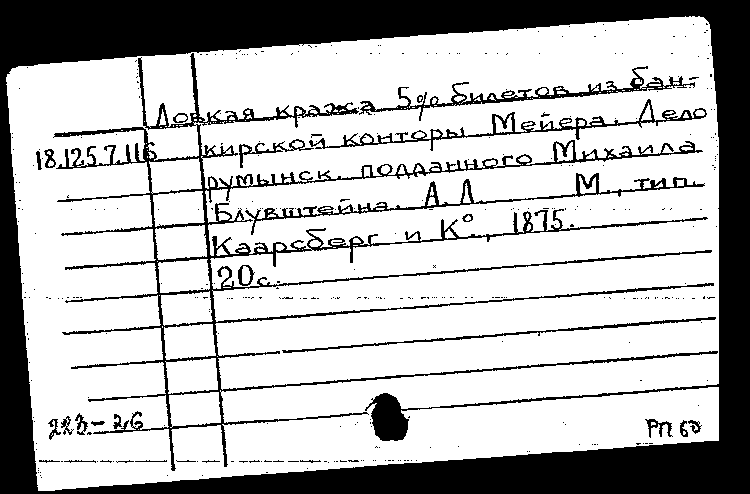 Ловкая кража 5% билетов из бан-
18.125.7.116 кирской конторы Мейера. Дело
румынск. подданного Михаила
Блувштейна. А. Л. М., тип.
Каарсберг и К°., 1875.
20с.
223-26
РП 60